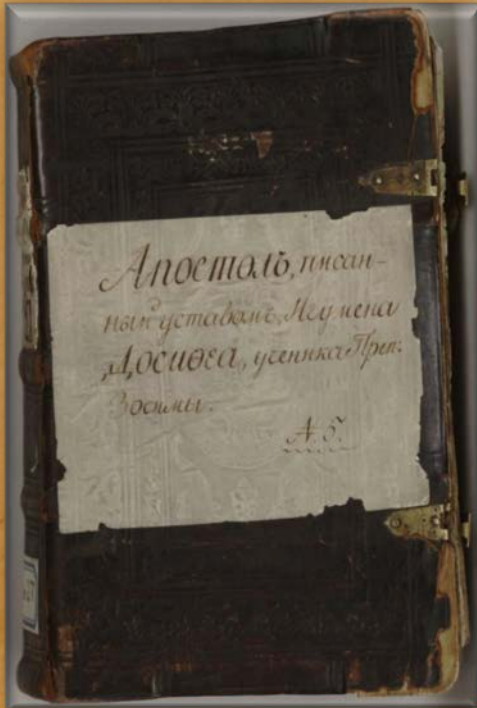 Апостолъ, писан-
ный уставомъ, Игумена
Досиѳеа, ученика Преп:
Зосимы.
А. 5.